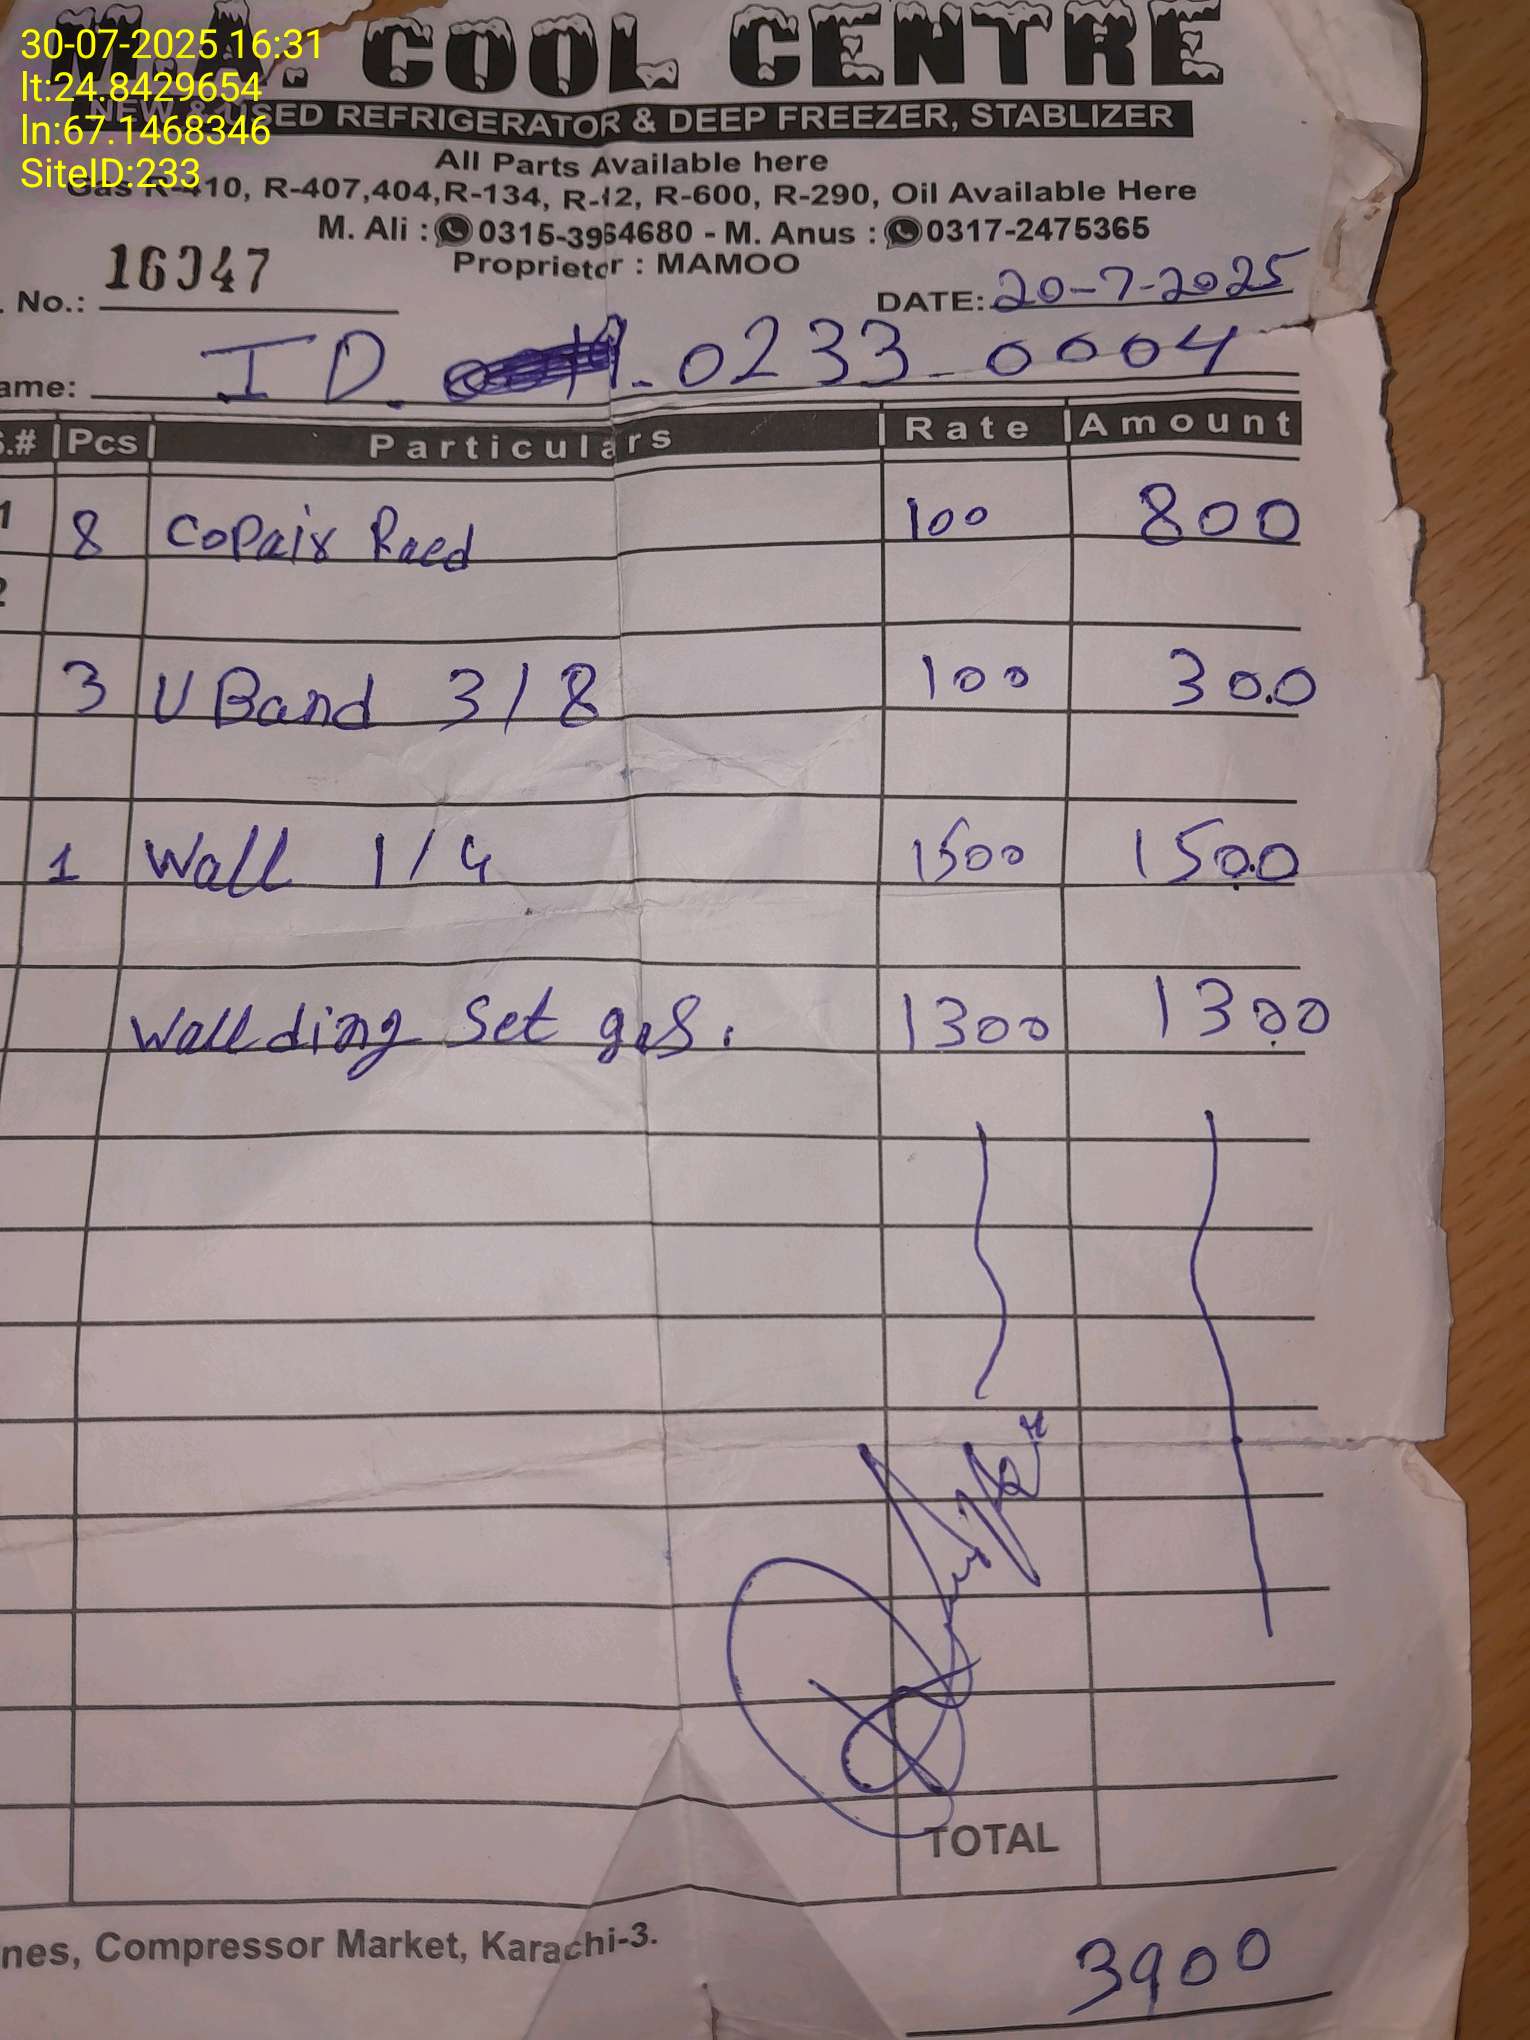 30-07-2025 16:31
lt:24.8429654
ln:67.1468346
SiteID:233
M.A. COOL CENTRE
NEW & USED REFRIGERATOR & DEEP FREEZER, STABLIZER
All Parts Available here
Gas R-410, R-407,404,R-134, R-12, R-600, R-290, Oil Available Here
M. Ali : 0315-3964680 - M. Anus : 0317-2475365
Proprietor : MAMOO
No.: 16047 DATE: 20-7-2025
ame: ID. 0233-0004
S.# Pcs Particulars Rate Amount
1 8 Copair Raed 100 800
2
3 U Band 3/8 100 300
1 Wall 1/4 1500 1500
Wallding Set gas. 1300 1300
TOTAL
nes, Compressor Market, Karachi-3.
3900